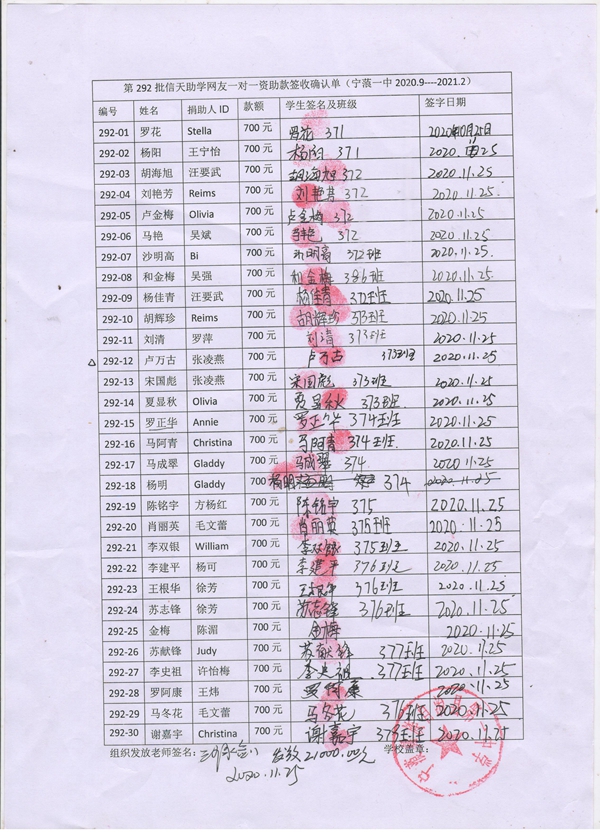 第 292 批信天助学网友一对一资助款签收确认单（宁蒗一中 2020.9----2021.2）
编号 姓名 捐助人 ID 款额 学生签名及班级 签字日期
292-01 罗花 Stella 700 元 罗花 371 2020年11月25日
292-02 杨阳 王宁怡 700 元 杨阳 371 2020. 25
292-03 胡海旭 汪要武 700 元 胡海旭 372 2020.11.25
292-04 刘艳芳 Reims 700 元 刘艳芳 372 2020.11.25
292-05 卢金梅 Olivia 700 元 卢金梅 372 2020.11.25
292-06 马艳 吴斌 700 元 马艳 372 2020.11.25
292-07 沙明高 Bi 700 元 沙明高 372班 2020.11.25
292-08 和金梅 吴强 700 元 和金梅 386班 2020.11.25
292-09 杨佳青 汪要武 700 元 杨佳青 372班 2020.11.25
292-10 胡辉珍 Reims 700 元 胡辉珍 373班 2020.11.25
292-11 刘清 罗萍 700 元 刘清 373班 2020.11.25
292-12 卢万古 张凌燕 700 元 卢万古 373班 2020.11.25
292-13 宋国彪 张凌燕 700 元 宋国彪 373班 2020.11.25
292-14 夏显秋 Olivia 700 元 夏显秋 373班 2020.11.25
292-15 罗正华 Annie 700 元 罗正华 374班 2020.11.25
292-16 马阿青 Christina 700 元 马阿青 374班 2020.11.25
292-17 马成翠 Gladdy 700 元 马成翠 374 2020.11.25
292-18 杨明 Gladdy 700 元 杨明 374 2020.11.25
292-19 陈铭宇 方杨红 700 元 陈铭宇 375 2020.11.25
292-20 肖丽英 毛文蕾 700 元 肖丽英 375班 2020.11.25
292-21 李双银 William 700 元 李双银 375班 2020.11.25
292-22 李建平 杨可 700 元 李建平 376班 2020.11.25
292-23 王根华 徐芳 700 元 王根华 376班 2020.11.25
292-24 苏志锋 徐芳 700 元 苏志锋 376班 2020.11.25
292-25 金梅 陈湄 700 元 金梅 2020.11.25
292-26 苏献锋 Judy 700 元 苏献锋 377班 2020.11.25
292-27 李史祖 许怡梅 700 元 李史祖 377班 2020.11.25
292-28 罗阿康 王炜 700 元 2020.11.25
292-29 马冬花 毛文蕾 700 元 马冬花 376班 2020.11.25
292-30 谢嘉宇 Christina 700 元 谢嘉宇 378班 2020.11.25
组织发放老师签名： 发放21000.00元 学校盖章：
2020.11.25